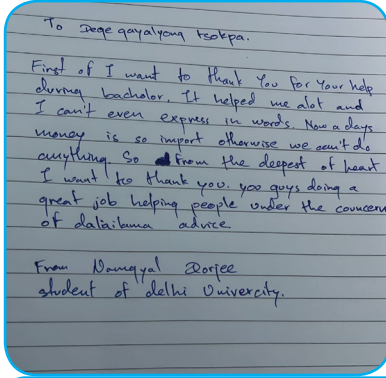 To Dege gayalyong tsokpa.
First of I want to thank You for Your help
during bacholor. It helped me alot and
I can't even express in words. Now a days
money is so import otherwise we can't do
anything. So from the deepest of heart
I want to thank you. you guys doing a
great job helping people under the councern
of dalailama advice
From Namgyal Dorjee
student of delhi Univercity.